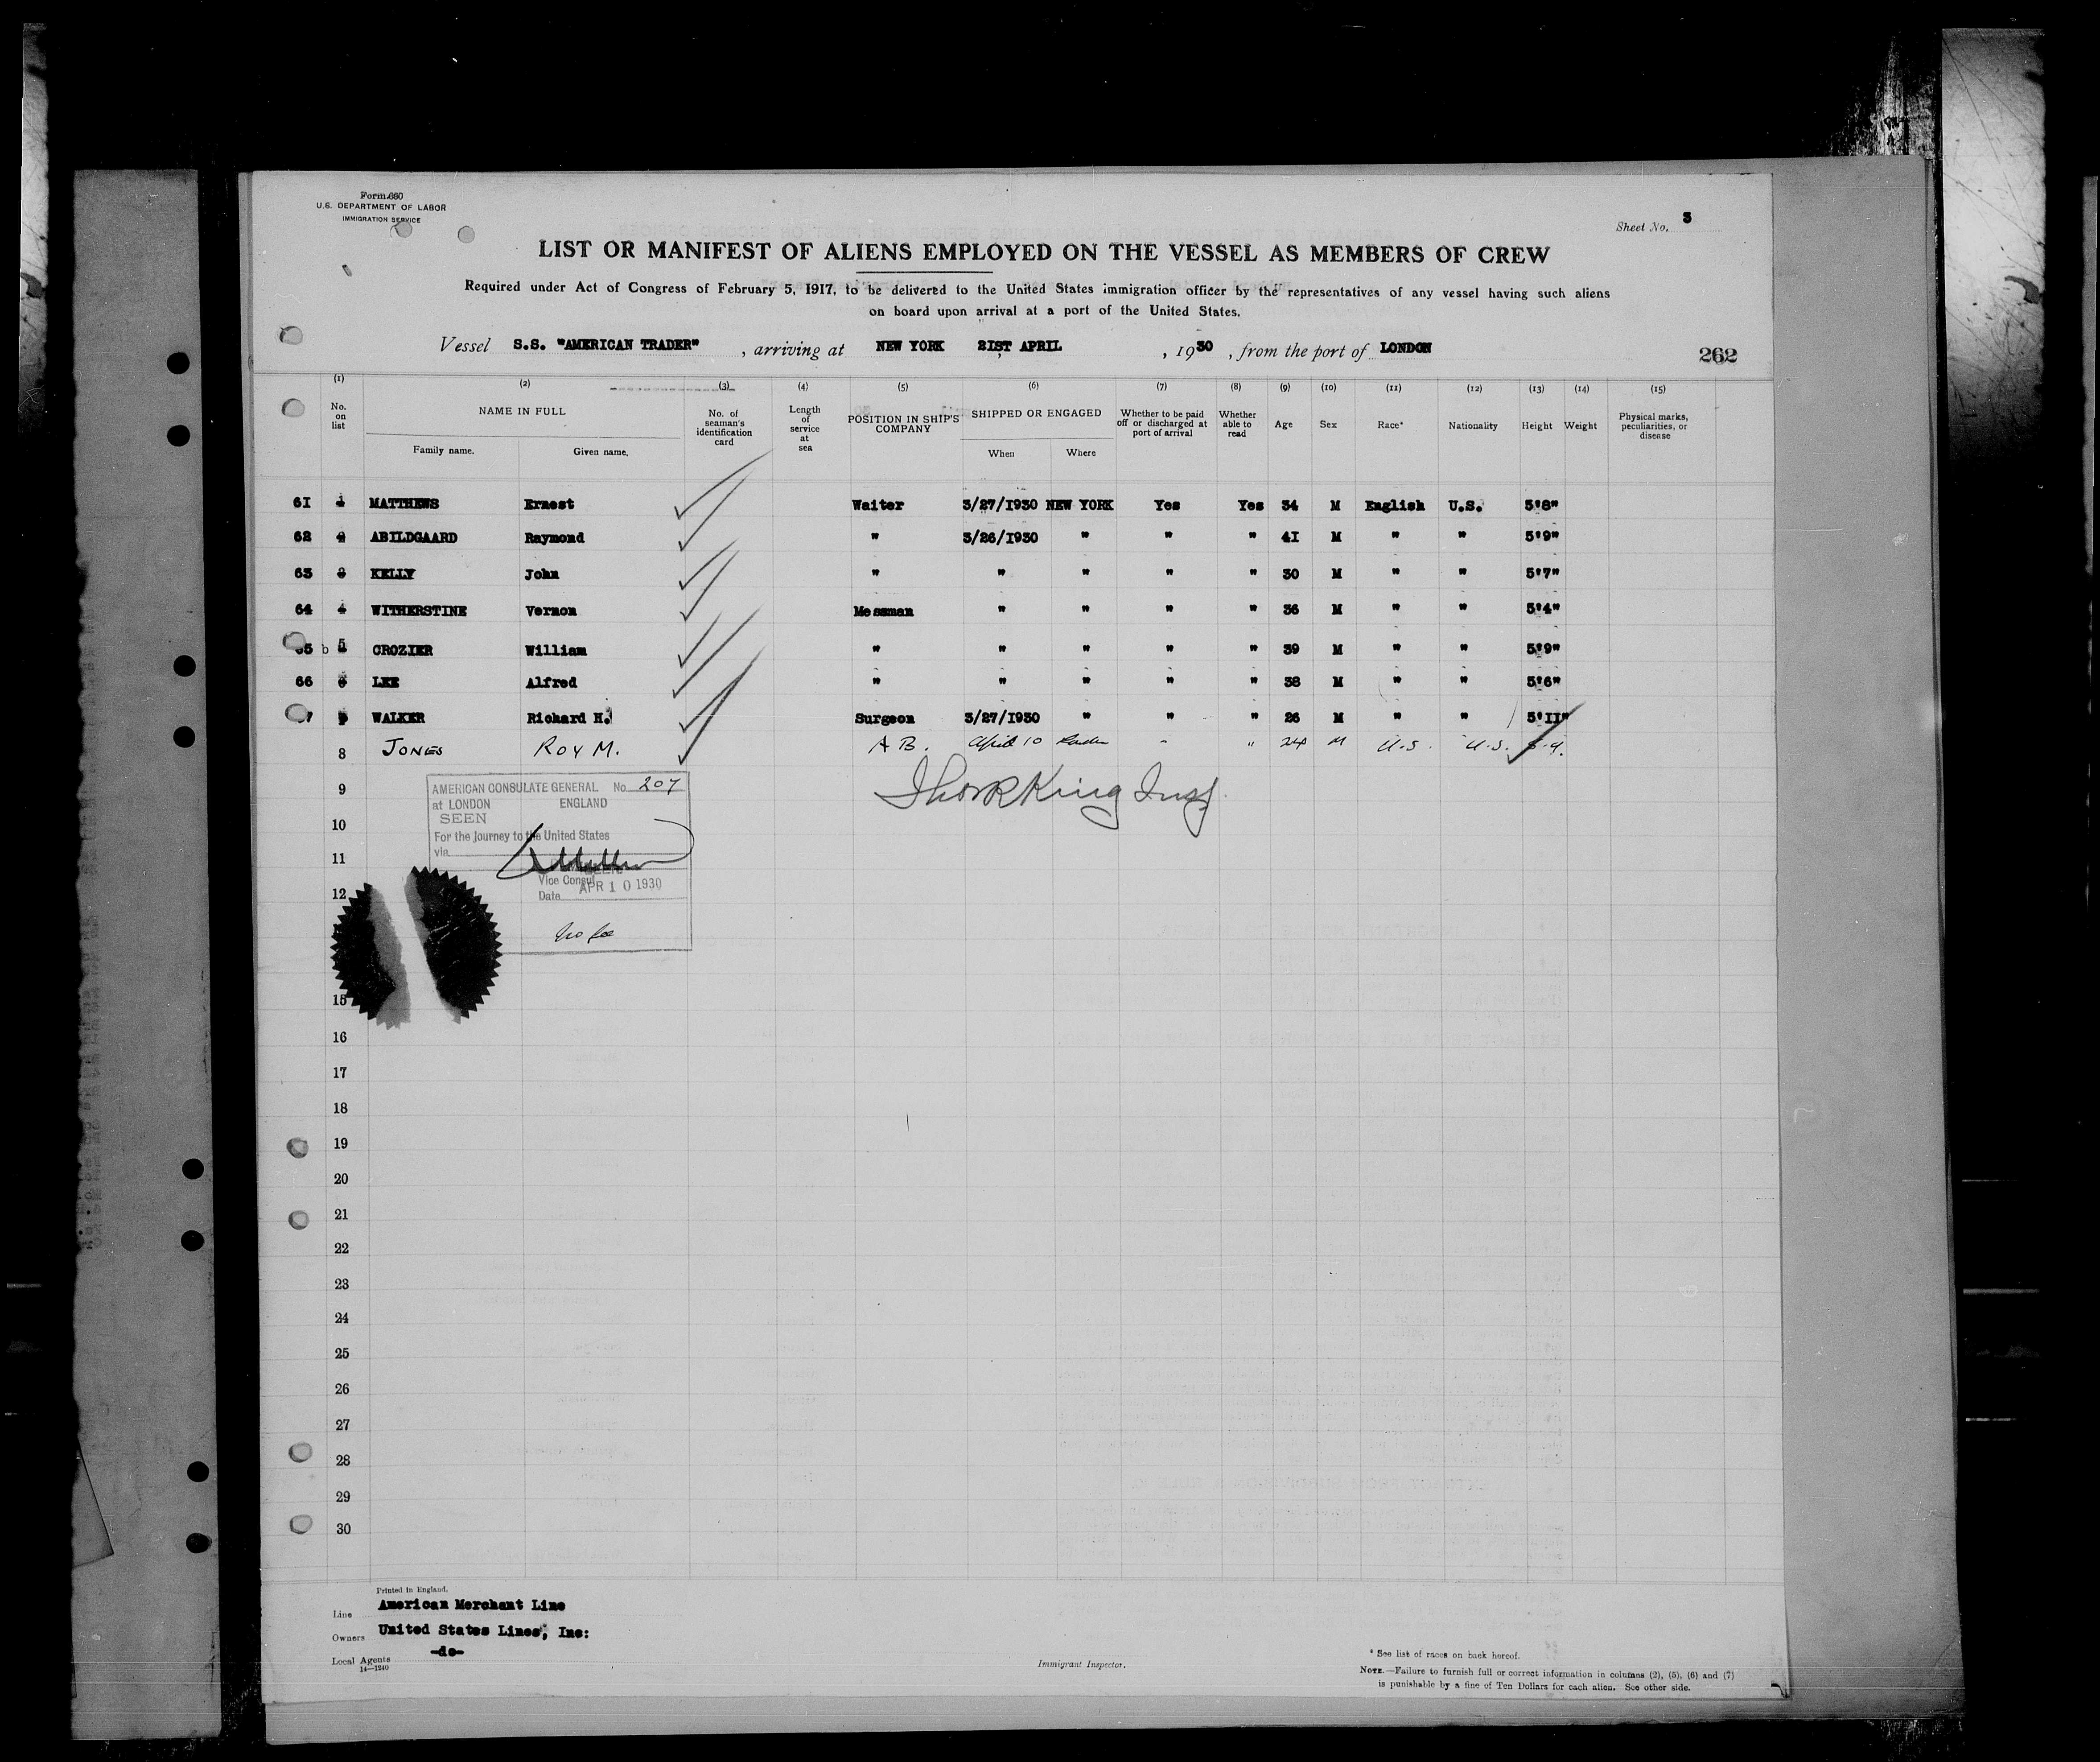 Form 680
U.S. DEPARTMENT OF LABOR
IMMIGRATION SERVICE
Sheet No. 3
LIST OR MANIFEST OF ALIENS EMPLOYED ON THE VESSEL AS MEMBERS OF CREW
Required under Act of Congress of February 5, 1917, to be delivered to the United States immigration officer by the representatives of any vessel having such aliens
on board upon arrival at a port of the United States.
Vessel S.S. "AMERICAN TRADER" , arriving at NEW YORK 21ST APRIL , 1930 , from the port of LONDON
262
(1) (2) (3) (4) (5) (6) (7) (8) (9) (10) (11) (12) (13) (14) (15)
No. on list NAME IN FULL Family name. Given name. No. of seaman's identification card Length of service at sea POSITION IN SHIP'S COMPANY SHIPPED OR ENGAGED When Where Whether to be paid off or discharged at port of arrival Whether able to read Age Sex Race* Nationality Height Weight Physical marks, peculiarities, or disease
61 1 MATTHEWS Ernest Waiter 3/27/1930 NEW YORK Yes Yes 34 M English U.S. 5'8"
62 2 ABILDGAARD Raymond " 3/26/1930 " " " 41 M " " 5'9"
63 3 KELLY John " " " " " 30 M " " 5'7"
64 4 WITHERSTINE Vernon Messman " " " " 36 M " " 5'4"
65 b 5 CROZIER William " " " " " 39 M " " 5'9"
66 6 LEE Alfred " " " " " 38 M " " 5'6"
7 WALKER Richard H. Surgeon 3/27/1930 " " " 26 M " " 5'11"
8 JONES ROY M. A B. April 10 London " " 24 M U.S. U.S. 5.9.
9
AMERICAN CONSULATE GENERAL No. 207
at LONDON ENGLAND
SEEN
For the journey to the United States
via
Vice Consul
Date APR 10 1930
no fee
King Insp.
10
11
12
15
16
17
18
19
20
21
22
23
24
25
26
27
28
29
30
Printed in England.
Line American Merchant Line
Owners United States Lines, Inc:
Local Agents -do-
14—1240
Immigrant Inspector.
* See list of races on back hereof.
NOTE.—Failure to furnish full or correct information in columns (2), (5), (6) and (7)
is punishable by a fine of Ten Dollars for each alien. See other side.